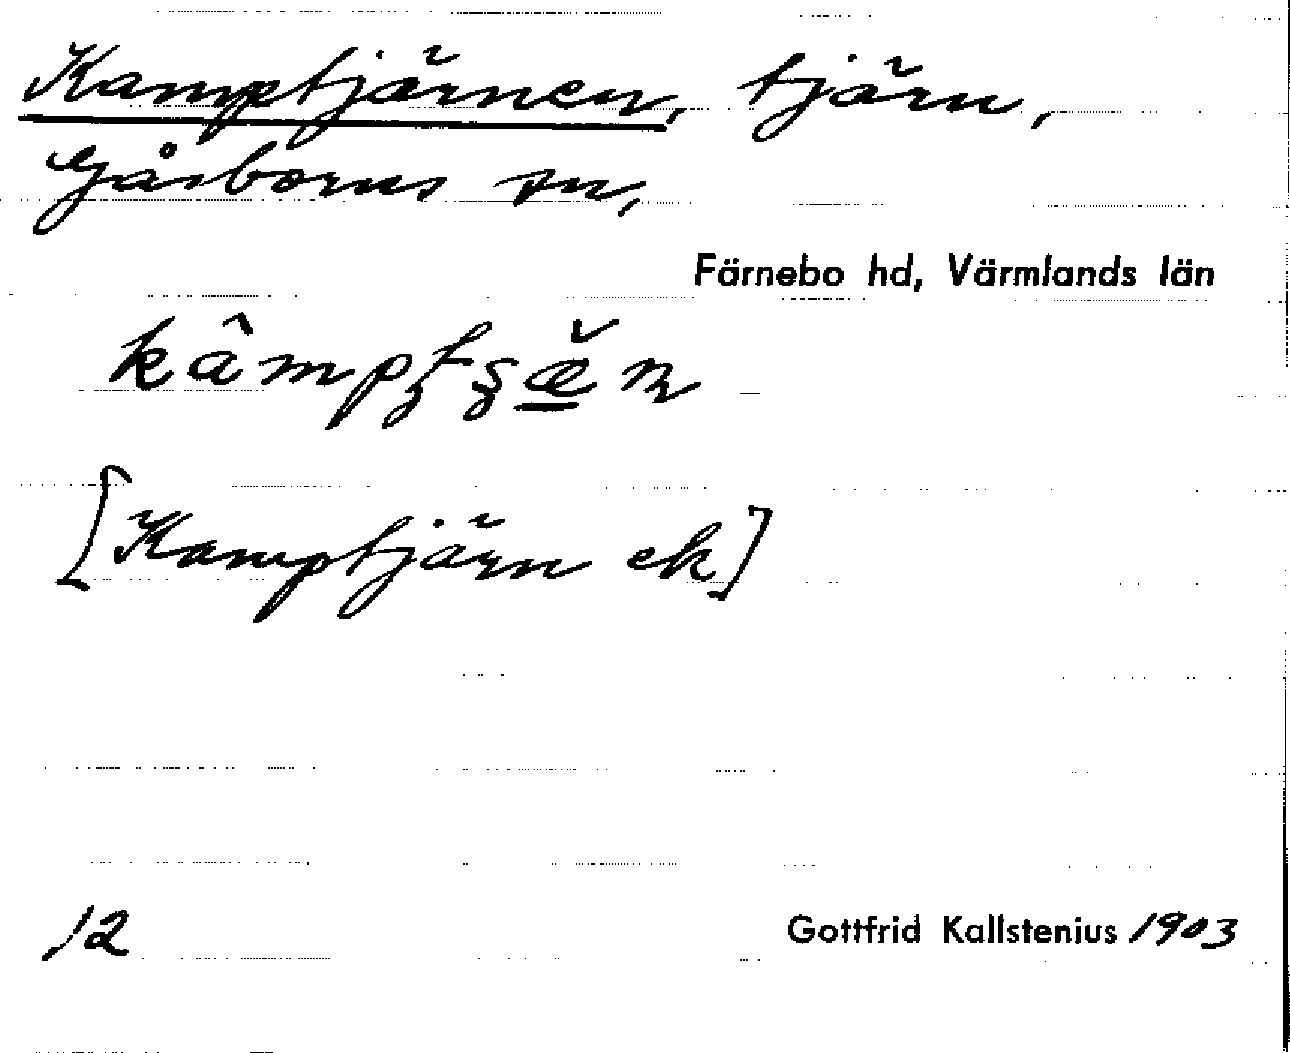 Kamptjärnen, tjärn,
Gåsborns sn,
Färnebo hd, Värmlands län
[Kamptjärn ek]
12
Gottfrid Kallstenius 1903